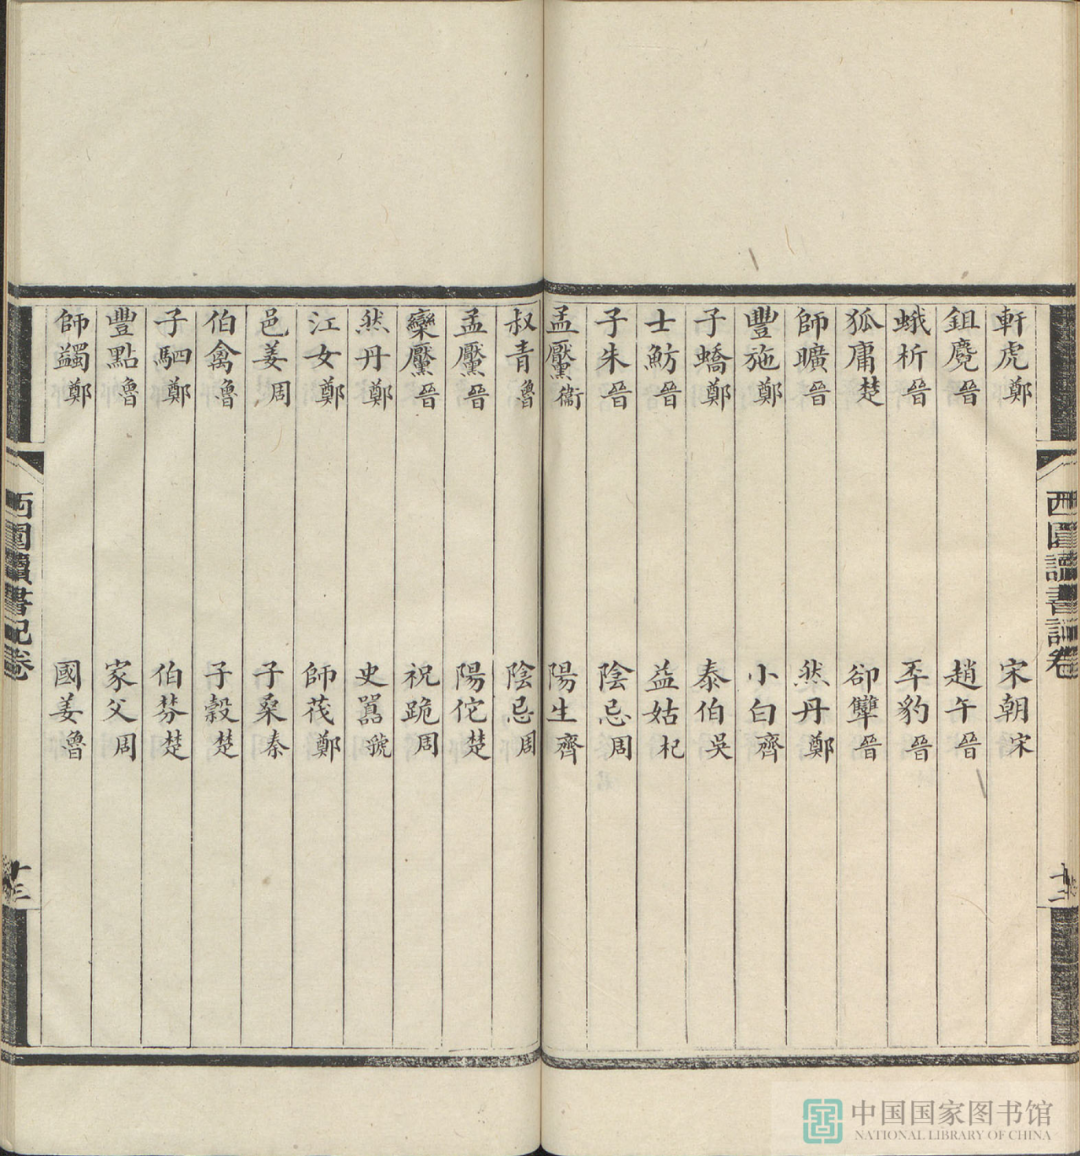 軒虎鄭 宋朝宋
鉏麑晉 趙午晉
蛾析晉 平豹晉
狐庸楚 卻犨晉
師曠晉 然丹鄭
豐施鄭 小白齊
子蟜鄭 泰伯吳
士魴晉 益姑杞
子朱晉 陰忌周
孟黶衞 陽生齊
叔青魯 陰忌周
孟黶晉 陽佗楚
欒黶晉 祝跪周
然丹鄭 史嚚虢
江女鄭 師茷鄭
邑姜周 子桑秦
伯禽魯 子穀楚
子駟鄭 伯棼楚
豐點魯 家父周
師蠲鄭 國姜魯
西圃讀書記卷
十二
西圃讀書記卷
十三
中国国家图书馆
NATIONAL LIBRARY OF CHINA